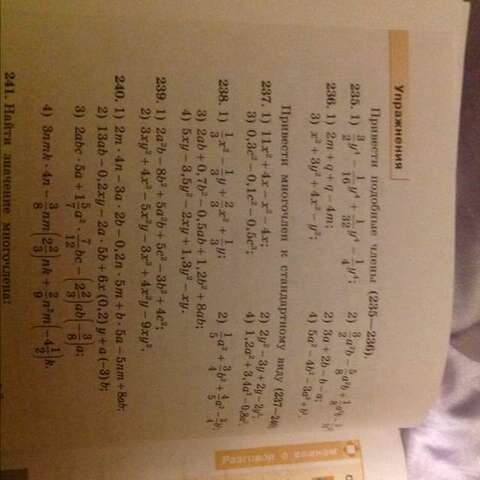 Упражнения
Привести подобные члены (235—236).
235. 1) 3/2 y⁴ − 1/16 y⁴ + 1/32 y⁴ − 1/4 y⁴;
236. 1) 2m + q + q − 4m; 2) 3a + 2b − b − a;
3) x² + 3y² + 4x² − y²; 4) 5a² − 4b² − 3a² + b².
Привести многочлен к стандартному виду
237. 1) 11x² + 4x − x² − 4x; 2) 2y² − 3y + 2y − 2y²;
3) 0,3c² − 0,1c² − 0,5c²; 4) 1,2a² + 3,4a² − 0,8a².
238. 1) 1/3 x² − 1/3 y + 2/3 x² + 1/3 y;
3) 2ab + 0,7b² − 0,5ab + 1,2b² + 8ab;
4) 5xy − 3,5y² − 2xy + 1,3y² − xy.
239. 1) 2a²b − 8b² + 5a²b + 5c² − 3b² + 4c²;
2) 3xy² + 4x³ − 5x²y − 3x³ + 4x²y − 9xy².
240. 1) 2m · 4n − 3a · 2b − 0,2n · 5m + b · 5a − 5nm + 8ab;
2) 13ab − 0,2xy − 2a · 5b + 6x (0,2) y + a (−3) b;
3) 2abc · 5a + 1 5/7 a² · 7/12 bc − 2 2/3 ab(−3/8)a;
4) 3nmk · 4n − 3/8 nm(2 2/3)nk + 2/9 n²m(−4 1/2)k.
241. Найти значение многочлена: